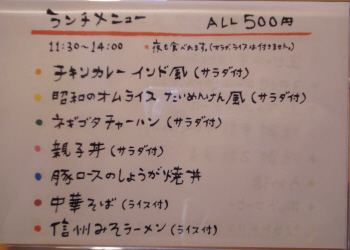 ランチメニュー ALL 500円
11:30~14:00 *夜も食べれます。(サラダ、ライスは付きません。)
チキンカレー インド風 (サラダ付)
昭和のオムライス たいめいけん風 (サラダ付)
ネギゴタチャーハン (サラダ付)
親子丼 (サラダ付)
豚ロースのしょうが焼丼
中華そば (ライス付)
信州みそラーメン (ライス付)